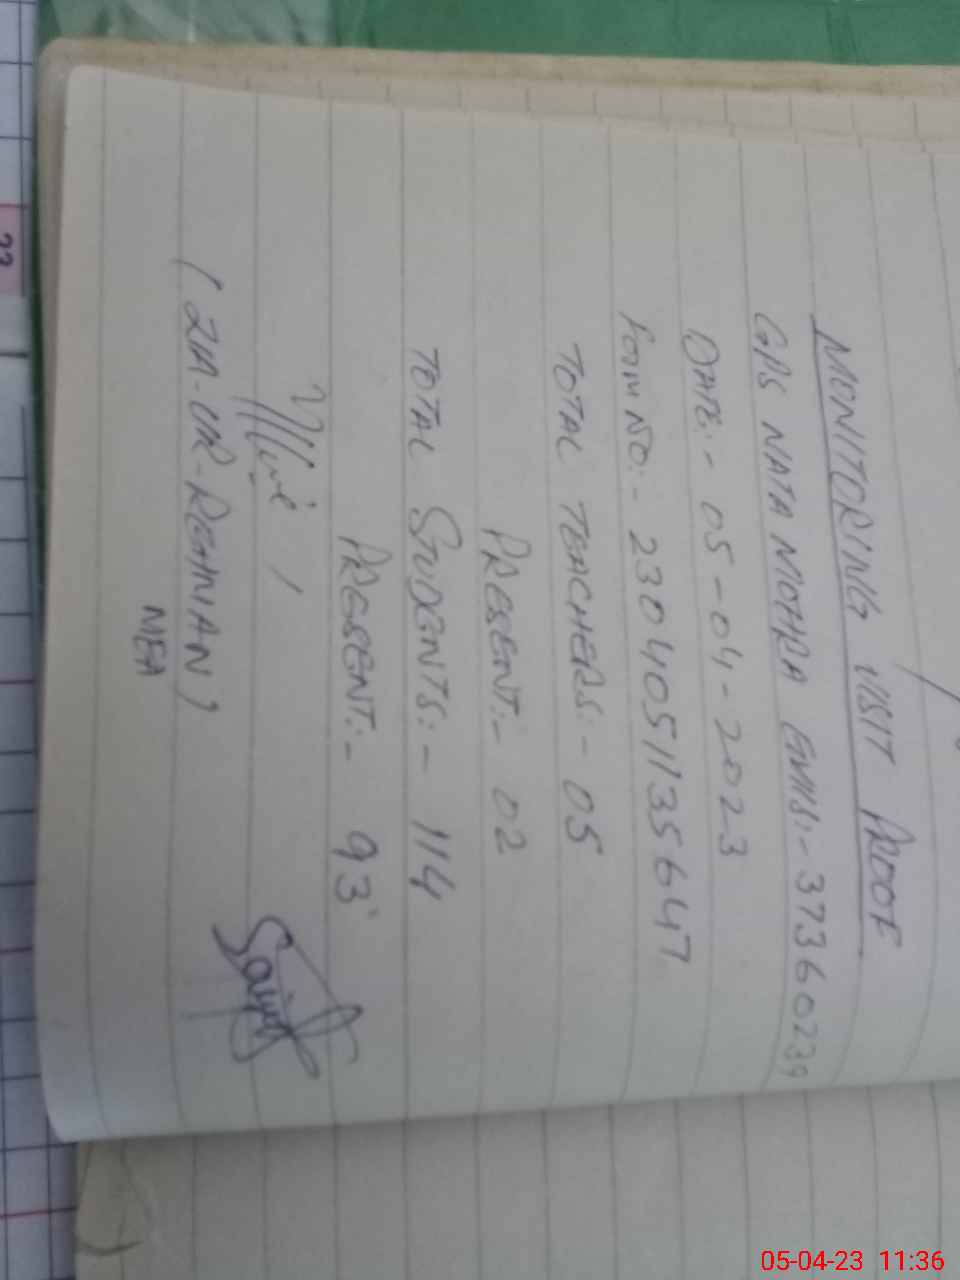 MONITORING VISIT PROOF
GPS NATA MOTHRA EMIS:- 37360239
DATE:- 05-04-2023
FORM NO:- 2304051135647
TOTAL TEACHERS:- 05
PRESENT:- 02
TOTAL STUDENTS:- 114
PRESENT:- 93
(ZIA-UR-REHMAN)
MEA
33
05-04-23 11:36